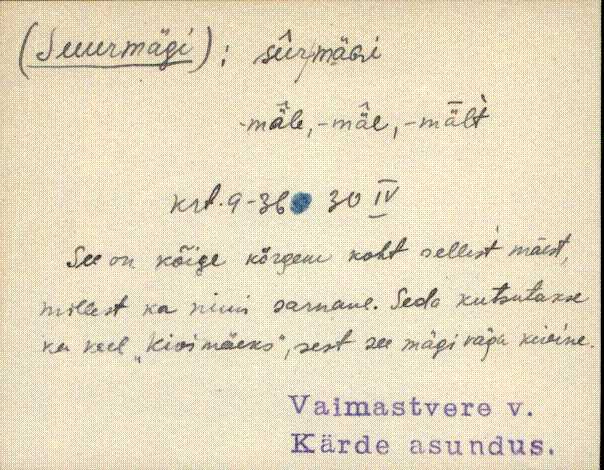 (Suurmägi); sûrmägi
-mäle, -mäe, -mält
krt. 9-36 30 IV
See on kõige kõrgem koht sellest mäest,
millest ka nimi sarnane. Seda kutsutakse
ka veel „Kivimäeks", sest see mägi väga kivine.
Vaimastvere v.
Kärde asundus.